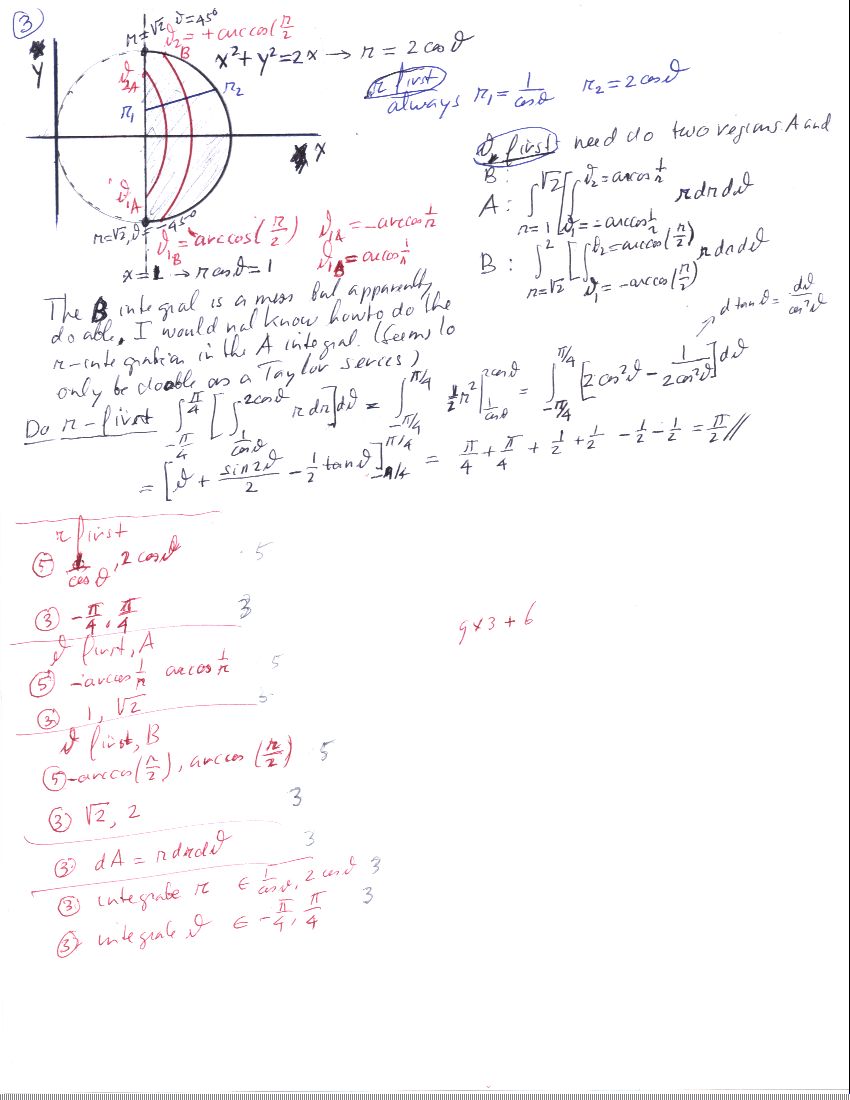 ③
r=√2, ϑ=45°
ϑ₂ = + arccos(r/2
B
x²+y²=2x → r = 2 cos ϑ
Y
ϑ₂A
r₁
r₂
X
ϑ₁A
r=√2, ϑ=-45°
ϑ₁B = arccos(r/2)
ϑ₁A = -arccos 1/r
ϑ₁B = arccos 1/r
x=1 → r cos ϑ = 1
r first
always r₁ = 1/cosϑ r₂ = 2cosϑ
ϑ first: need do two regions A and
B:
A: ∫_{r=1}^{√2} [∫_{ϑ₁=-arccos 1/r}^{ϑ₂=arccos 1/r} r dr dϑ
B: ∫_{r=√2}^{2} [∫_{ϑ₁=-arccos(r/2)}^{ϑ₂=arccos(r/2)} r dr dϑ
The B integral is a mess but apparently
doable. I would not know how to do the
r-integration in the A integral. (Seems to
only be doable as a Taylor series)
d tanϑ = dϑ/cos²ϑ
Do r-first ∫_{-π/4}^{π/4} [∫_{1/cosϑ}^{2cosϑ} r dr] dϑ = ∫_{-π/4}^{π/4} ½r² |_{1/cosϑ}^{2cosϑ} = ∫_{-π/4}^{π/4} [2cos²ϑ - 1/(2cos²ϑ)] dϑ
= [ϑ + sin2ϑ/2 - ½ tanϑ]_{-π/4}^{π/4} = π/4 + π/4 + ½ + ½ - ½ - ½ = π/2 //
r first
⑤ 1/cosϑ, 2cosϑ 5
③ -π/4, π/4 3
ϑ first, A
⑤ -arccos 1/r arccos 1/r 5
③ 1, √2
ϑ first, B
⑤ -arccos(r/2), arccos(r/2) 5
③ √2, 2 3
③ dA = r dr dϑ 3
③ integrate r ∈ 1/cosϑ, 2cosϑ 3
③ integrate ϑ ∈ -π/4, π/4 3
9×3+6